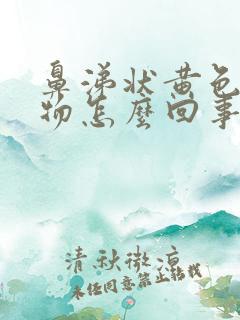 鼻涕状黄色
物怎麼回事
清秋微凉
未经同意禁止转载